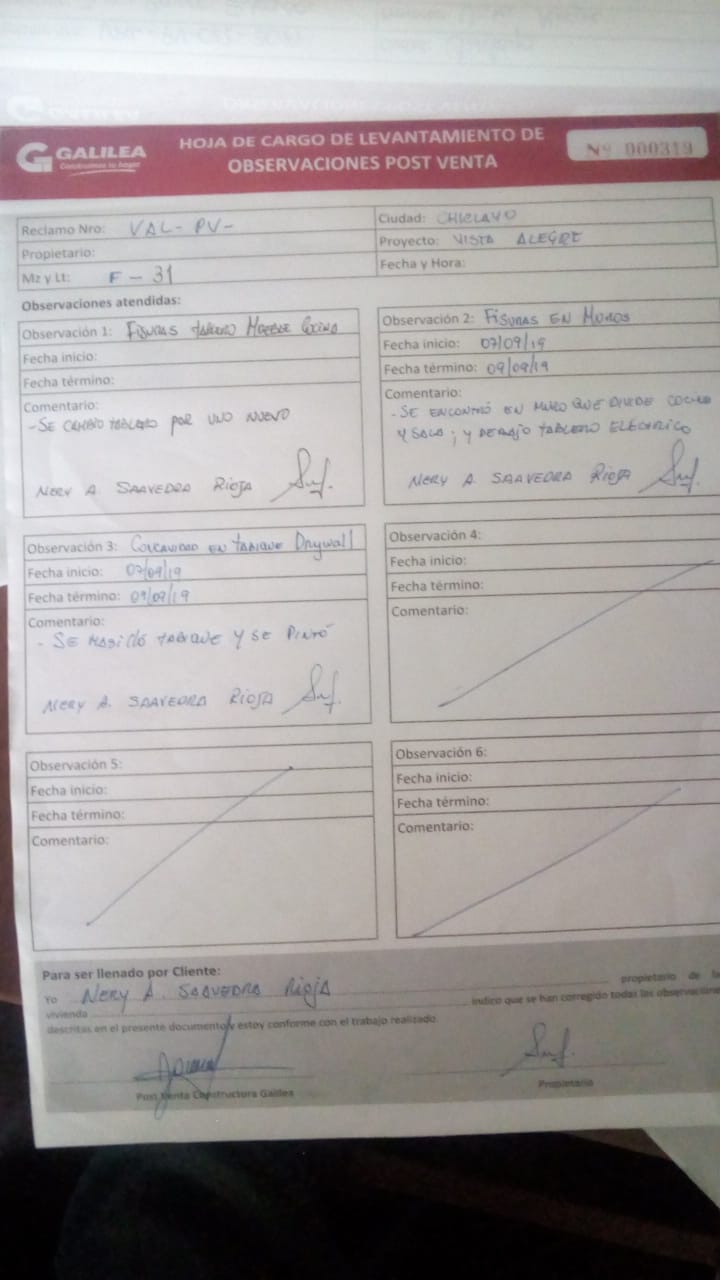 GALILEA
Construimos tu hogar
HOJA DE CARGO DE LEVANTAMIENTO DE
OBSERVACIONES POST VENTA
Nº 000319
Reclamo Nro: VAL-PV-
Propietario:
Mz y Lt: F-31
Ciudad: CHICLAYO
Proyecto: VISTA ALEGRE
Fecha y Hora:
Observaciones atendidas:
Observación 1: FISURAS TABLERO MUEBLE COCINA
Fecha inicio:
Fecha término:
Comentario:
- SE CAMBIO TABLERO POR UNO NUEVO
NERY A. SAAVEDRA RIOJA
Observación 2: FISURAS EN MUROS
Fecha inicio: 07/09/19
Fecha término: 09/09/19
Comentario:
- SE ENCONTRÓ EN MURO QUE DIVIDE COCINA
Y SALA; Y DEBAJO TABLERO ELECTRICO
NERY A. SAAVEDRA RIOJA
Observación 3: CONCAVIDAD EN TABIQUE Drywall
Fecha inicio: 07/09/19
Fecha término: 09/09/19
Comentario:
- SE MASILLÓ TABIQUE Y SE PINTÓ
NERY A. SAAVEDRA RIOJA
Observación 4:
Fecha inicio:
Fecha término:
Comentario:
Observación 5:
Fecha inicio:
Fecha término:
Comentario:
Observación 6:
Fecha inicio:
Fecha término:
Comentario:
Para ser llenado por Cliente:
Yo NERY A. SAAVEDRA RIOJA propietario de la
vivienda indico que se han corregido todas las observaciones
descritas en el presente documento y estoy conforme con el trabajo realizado.
Post Venta Constructora Galilea
Propietario